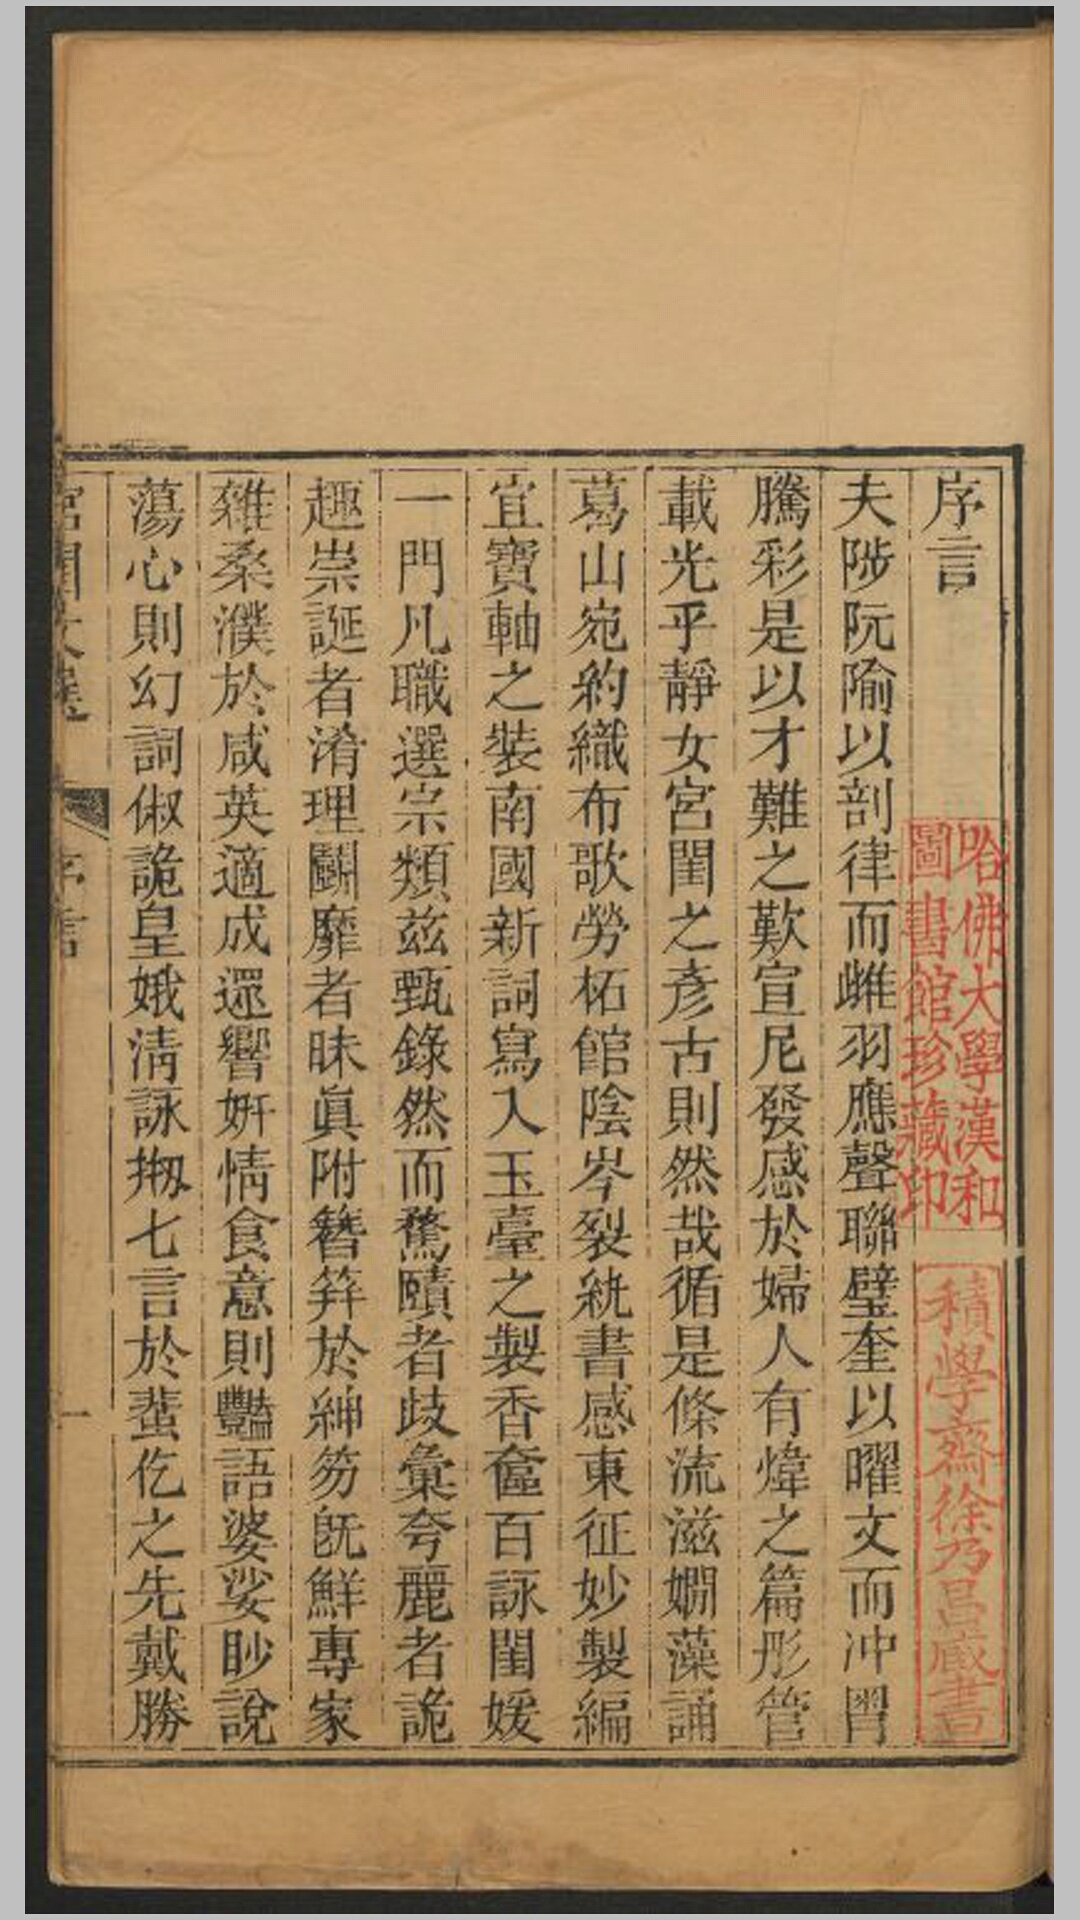 序言
夫陟阮隃以剖律而雌羽應聲聯璧奎以曜文而冲胃
騰彩是以才難之歎宣尼發感於婦人有煒之篇彤管
載光乎靜女宮閨之彥古則然哉循是條流滋嫺藻誦
葛山宛約織布歌勞柘館陰岑裂紈書感東征妙製編
宜寶軸之裝南國新詞寫入玉臺之製香奩百詠閨媛
一門凡職選宗類茲甄錄然而騖賾者歧彙夸麗者詭
趣崇誕者淆理鬬靡者昧眞附簪筓於紳笏旣鮮專家
雜桑濮於咸英適成還響姸情食意則豔語婆娑眇說
蕩心則幻詞俶詭皇娥淸詠剏七言於蚩仡之先戴勝
宮閨文選
序言
一
哈佛大學漢和
圖書館珍藏印
積學齋徐乃昌藏書